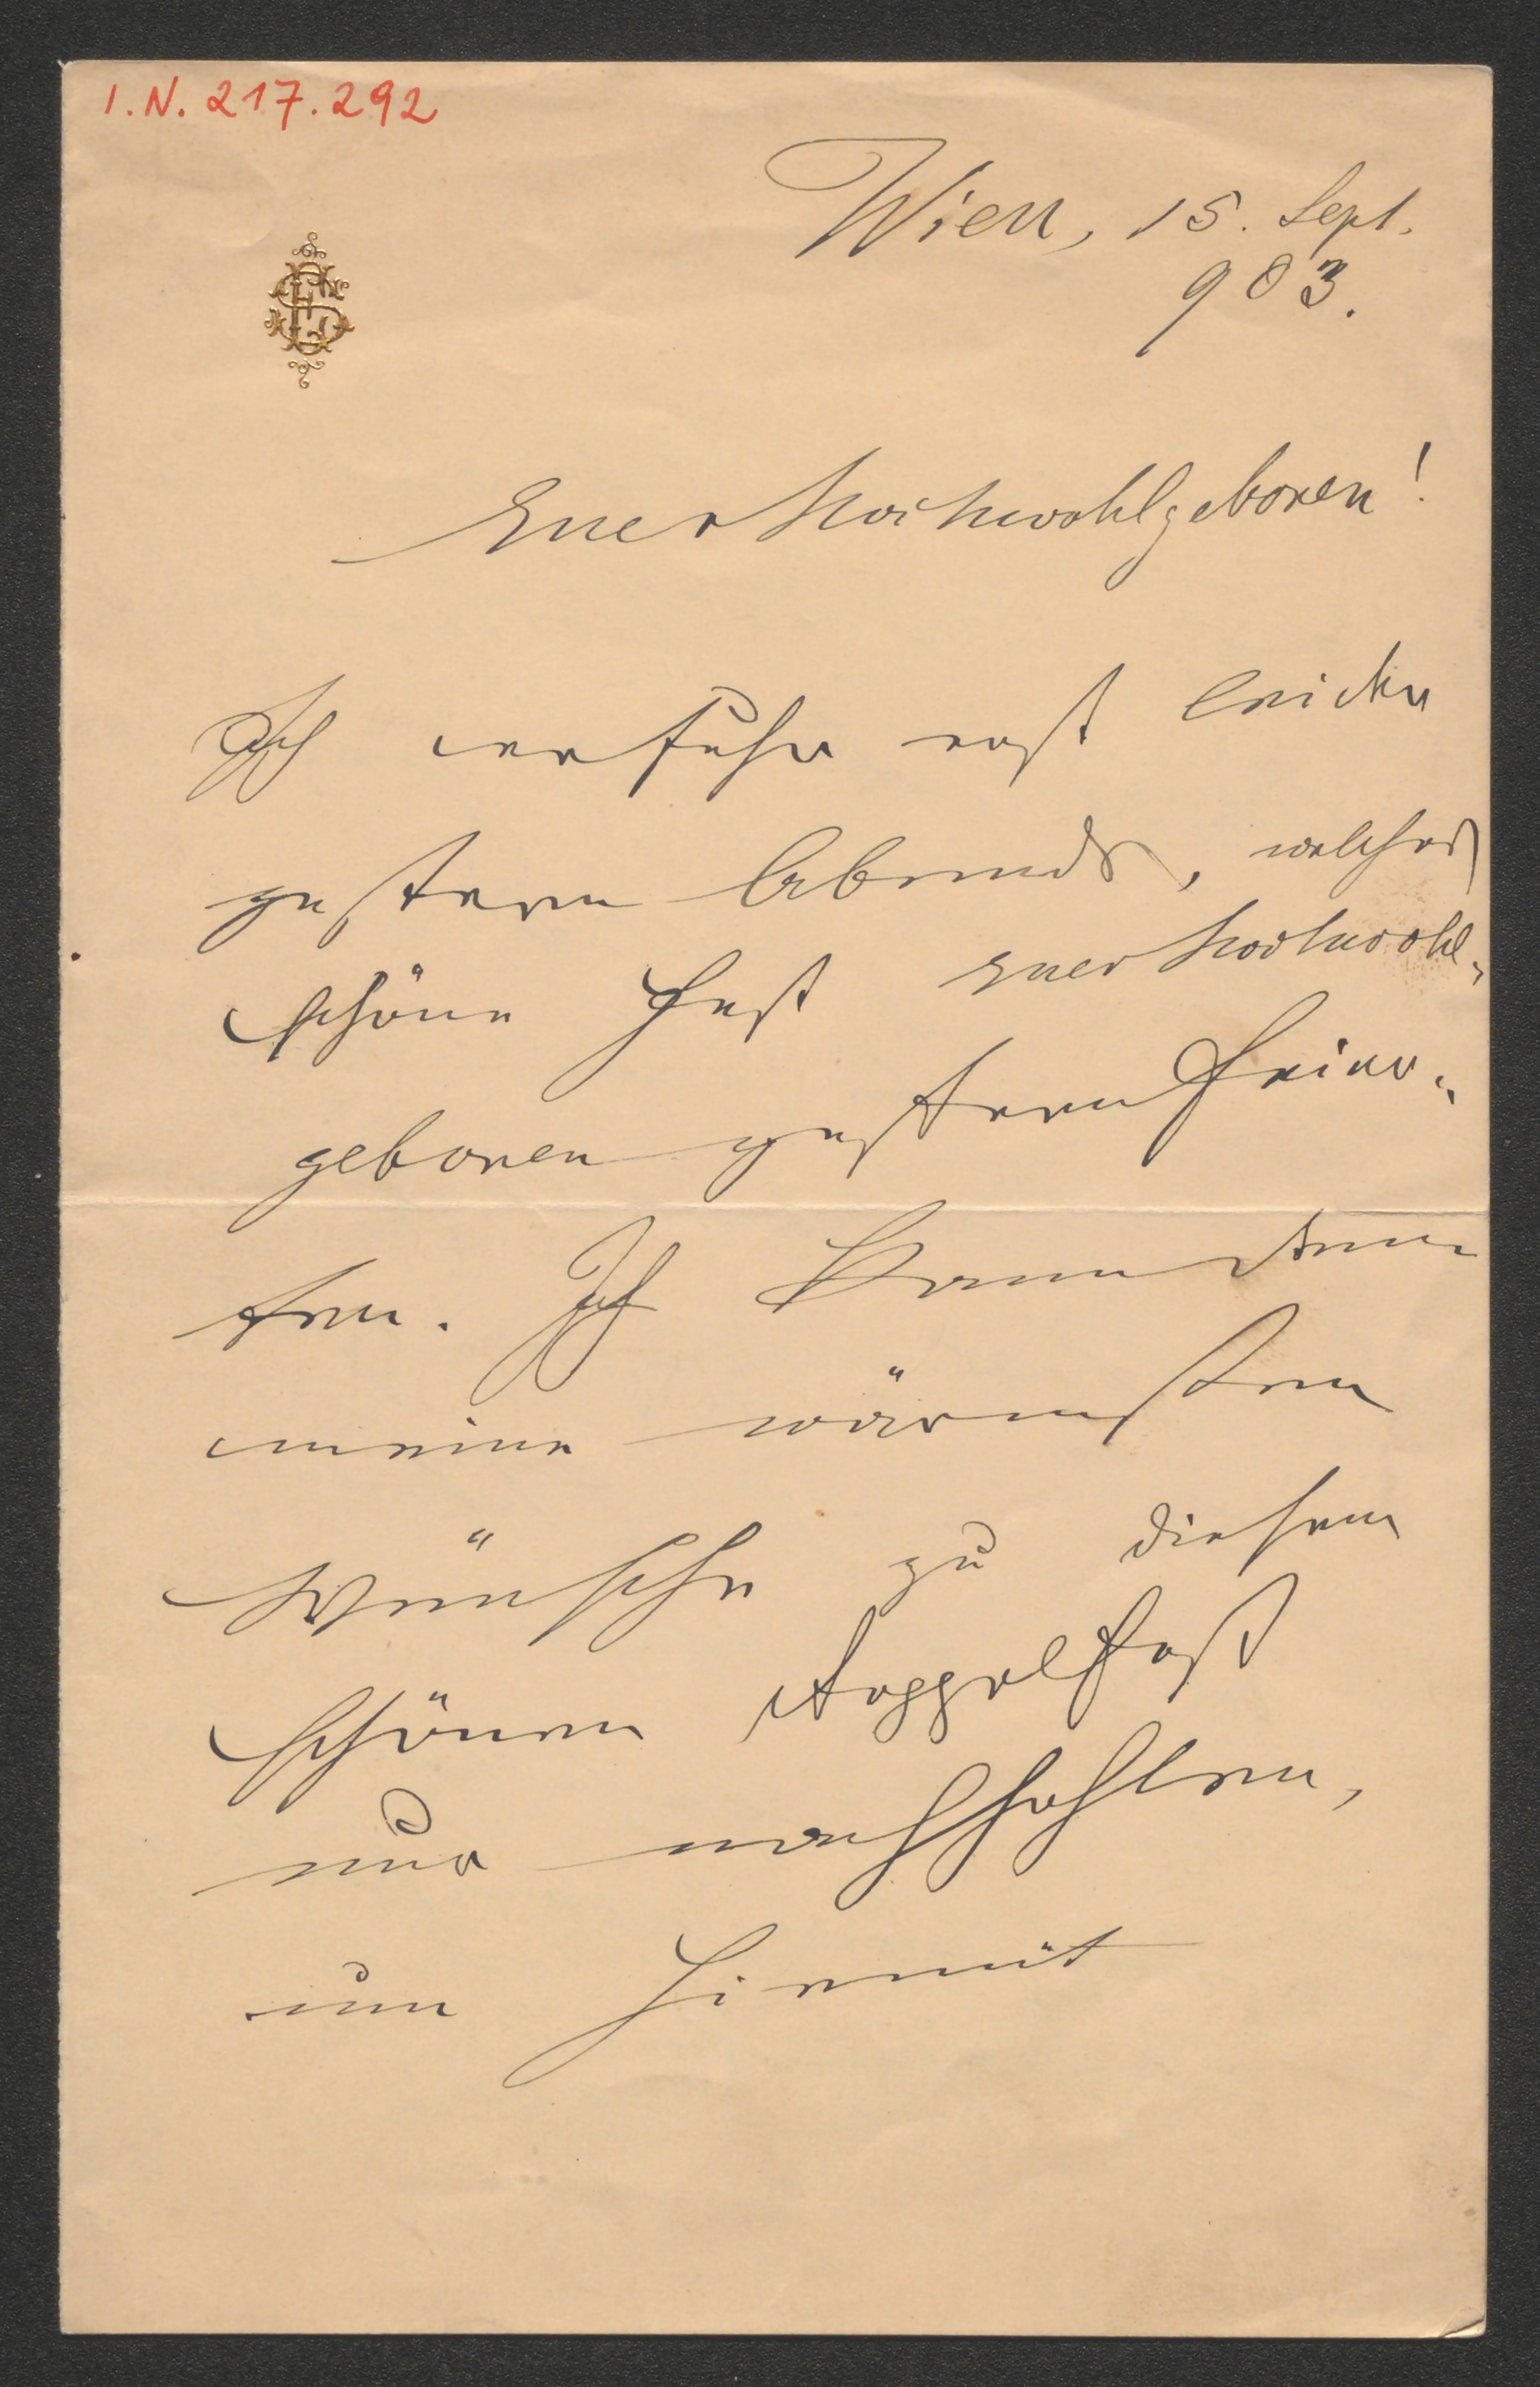 I.N. 217.292
Wien, 15. Sept.
903.
Euer Hochwohlgeboren!
Ich erfuhr erst leider
gestern Abends, welches
schöne Fest Euer Hochwohl-
geboren gestern feier-
ten. Ich kann denn
meine wärmsten
Wünsche zu diesem
schönen Doppelfest
nur nachholen,
um hiermit